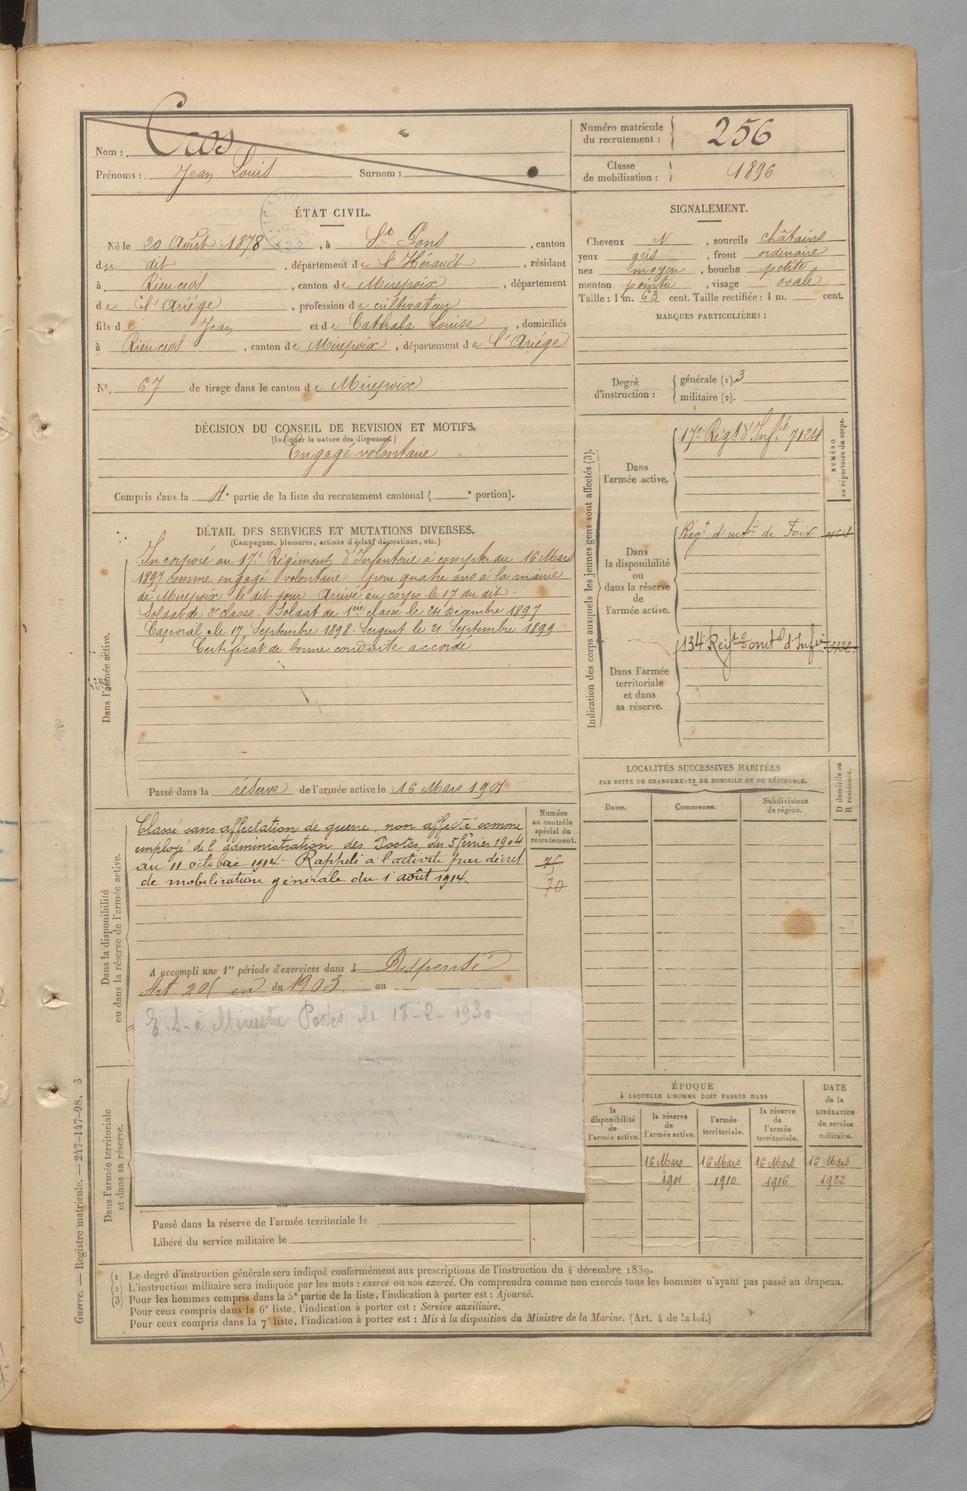 Nom : Cros
Prénoms : Jean Louis Surnom :
Numéro matricule du recrutement : 256
Classe de mobilisation : 1896
ÉTAT CIVIL.
Né le 20 Août 1878, à St Pons, canton
du dit, département de l'Hérault, résidant
à Rieucros, canton de Mirepoix, département
de l'Ariége, profession de cultivateur
fils de Jean et de Cathala Louise, domiciliés
à Rieucros, canton de Mirepoix, département de l'Ariége
N° 67 de tirage dans le canton de Mirepoix
SIGNALEMENT.
Cheveux N, sourcils châtains
yeux gris, front ordinaire
nez moyen, bouche petite
menton pointu, visage ovale
Taille : 1 m. 63 cent. Taille rectifiée : 1 m. cent.
MARQUES PARTICULIÈRES :
Degré d'instruction : générale (1). 3
militaire (2).
DÉCISION DU CONSEIL DE REVISION ET MOTIFS.
(Indiquer la nature des dispenses.)
Engagé volontaire
Compris dans la 4e partie de la liste du recrutement cantonal ( e portion).
DÉTAIL DES SERVICES ET MUTATIONS DIVERSES.
(Campagnes, blessures, actions d'éclat, décorations, etc.)
Dans l'armée active.
Incorporé au 17e Régiment d'Infanterie à compter du 16 Mars
1897 comme engagé volontaire pour quatre ans à la mairie
de Mirepoix le dit jour. Arrivé au corps le 17 du dit.
Soldat de 2e classe. Soldat de 1ere classe le 24 Décembre 1897
Caporal le 17 Septembre 1898. Sergent le 21 Septembre 1899
Certificat de bonne conduite accordé
Passé dans la réserve de l'armée active le 16 Mars 1901
Indication des corps auxquels les jeunes gens sont affectés (3).
NUMÉRO au répertoire du corps.
Dans l'armée active.
17e Régt d'Infie 7124
Dans la disponibilité ou dans la réserve de l'armée active.
Regt d'infie de Foix
Dans l'armée territoriale et dans sa réserve.
134 Regt territl d'Infie
LOCALITÉS SUCCESSIVES HABITÉES
PAR SUITE DE CHANGEMENTS DE DOMICILE OU DE RÉSIDENCE.
Dates. Communes. Subdivisions de région.
D domicile ou R résidence.
Dans la disponibilité ou dans la réserve de l'armée active.
Numéro au contrôle spécial du recrutement.
Classé sans affectation de guerre, non affecté comme
employé de l'administration des Postes, du 5 février 1904
au 11 octobre 1914. Rappelé à l'activité par décret
de mobilisation générale du 1 août 1914.
75
70
A accompli une 1re période d'exercices dans l Dispensé
Art. 201 en du 1903 au
E. S. à Ministre Postes le 18-2-1930
Dans l'armée territoriale et dans sa réserve.
Passé dans la réserve de l'armée territoriale le
Libéré du service militaire le
ÉPOQUE
À LAQUELLE L'HOMME DOIT PASSER DANS
la disponibilité de l'armée active.
la réserve de l'armée active.
l'armée territoriale.
la réserve de l'armée territoriale.
DATE de la LIBÉRATION du service militaire.
16 Mars 16 Mars 16 Mars 16 Mars
1901 1910 1916 1922
(1 Le degré d'instruction générale sera indiqué conformément aux prescriptions de l'instruction du 4 décembre 1889.
(2) L'instruction militaire sera indiquée par les mots : exercé ou non exercé. On comprendra comme non exercés tous les hommes n'ayant pas passé au drapeau.
(3) Pour les hommes compris dans la 5e partie de la liste, l'indication à porter est : Ajourné.
Pour ceux compris dans la 6e liste, l'indication à porter est : Service auxiliaire.
Pour ceux compris dans la 7e liste, l'indication à porter est : Mis à la disposition du Ministre de la Marine. (Art. 4 de la loi.)
Guerre. — Registre matricule. — 247-147-98. 3